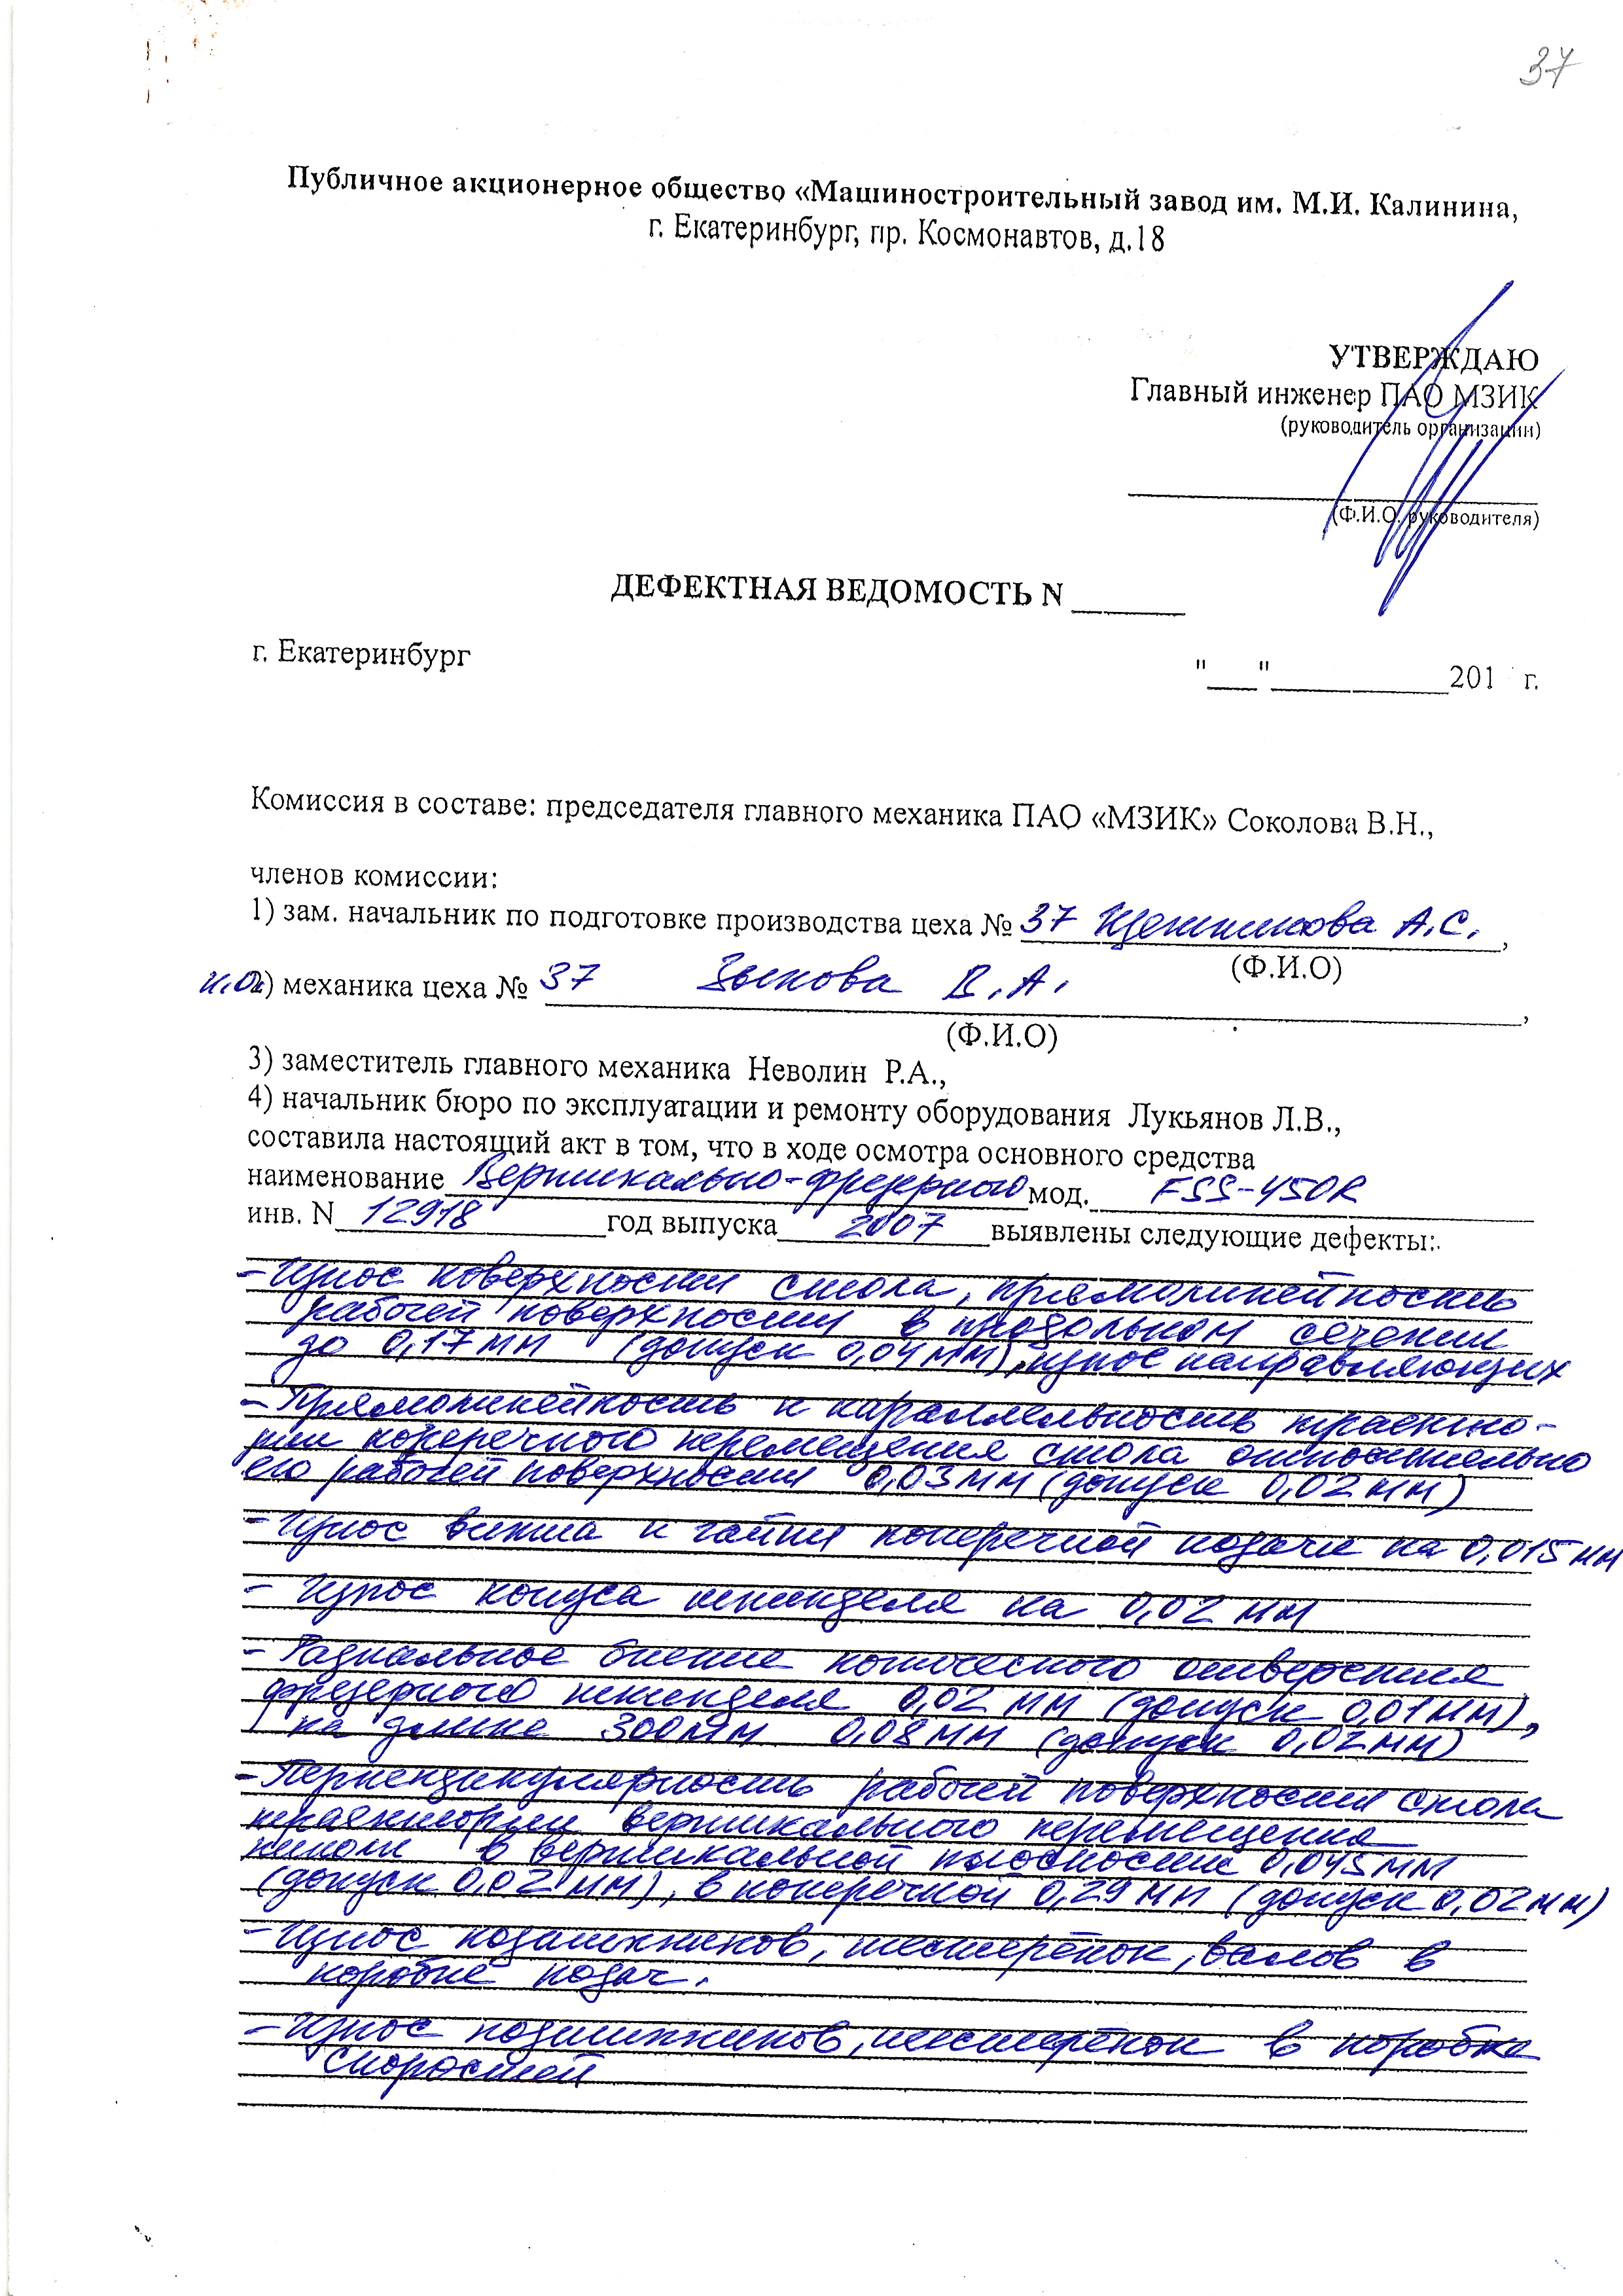 37
Публичное акционерное общество «Машиностроительный завод им. М.И. Калинина,
г. Екатеринбург, пр. Космонавтов, д.18
УТВЕРЖДАЮ
Главный инженер ПАО МЗИК
(руководитель организации)
(Ф.И.О. руководителя)
ДЕФЕКТНАЯ ВЕДОМОСТЬ N ______
г. Екатеринбург "___"___________201 г.
Комиссия в составе: председателя главного механика ПАО «МЗИК» Соколова В.Н.,
членов комиссии:
1) зам. начальник по подготовке производства цеха № 37 А.С.,
(Ф.И.О)
и.о. 2) механика цеха № 37 Зыкова В.А.,
(Ф.И.О)
3) заместитель главного механика Неволин Р.А.,
4) начальник бюро по эксплуатации и ремонту оборудования Лукьянов Л.В.,
составила настоящий акт в том, что в ходе осмотра основного средства
наименование Вертикально-фрезерного мод. FSS-450R
инв. N 12918 год выпуска 2007 выявлены следующие дефекты:
- Износ поверхности стола, прямолинейность
рабочей поверхности в продольном сечении
до 0,17 мм (допуск 0,04 мм), износ направляющих
- Прямолинейность и параллельность траекто-
рии поперечного перемещения стола относительно
его рабочей поверхности 0,03 мм (допуск 0,02 мм)
- Износ винта и гайки поперечной подачи на 0,015 мм
- Износ конуса шпинделя на 0,02 мм
- Радиальное биение конического отверстия
фрезерного шпинделя 0,02 мм (допуск 0,01 мм),
на длине 300 мм 0,08 мм (допуск 0,02 мм)
- Перпендикулярность рабочей поверхности стола
траектории вертикального перемещения
пиноли в вертикальной плоскости 0,045 мм
(допуск 0,02 мм), в поперечной 0,29 мм (допуск 0,02 мм)
- Износ подшипников, шестерёнок, валов в
коробке подач.
- Износ подшипников, шестерёнок в коробке
скоростей